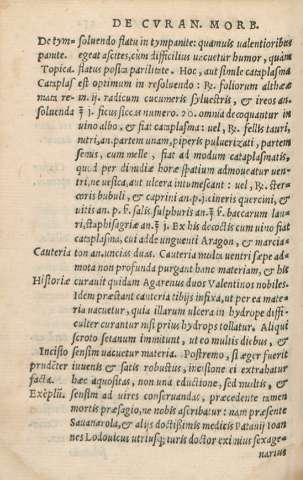 DE CVRAN. MORB.
De tym- soluendo flatu in tympanite: quamuis ualentioribus
panite. egeat ascites, cùm difficilius uacuetur humor, quàm
Topica. flatus posita paritate. Hoc, aut simile cataplasma
Cataplas est optimum in resoluendo: ℞. foliorum altheæ
ma re- in. ij. radicum cucumeris syluestris, & ireos an.
soluendi ℥ j. ficus siccas numero. 20. omnia decoquantur in
uino albo, & fiat cataplasma: uel, ℞. fellis tauri,
nitri, an. partem unam, piperis puluerizati, partem
semis, cum melle, fiat ad modum cataplasmatis,
quod per dimidiæ horæ spatium admoueatur uen-
tri, ne uesica, aut ulcera intumescant: uel, ℞. ster-
coris bubuli, & caprini an. p. j. cineris quercini, &
uitis an. p. ß. salis, sulphuris an. ℥. ß. baccarum lau-
ri, staphisagriæ an. ℥ j. Ex his decoctis cum uino fiat
cataplasma, cui adde unguenti Aragon, & marcia-
Cauteria ton an. uncias duas. Cauteria multa uentri sæpe ad-
mota non profunda purgant hanc materiam, & his
Historiæ curauit quidam Agarenus duos Valentinos nobiles.
Idem præstant cauteria tibijs infixa, ut per ea mate-
ria uacuetur, quia illarum ulcera in hydrope diffi-
culter curantur nisi prius hydrops tollatur. Aliqui
scroto setanum immittunt, ut eo multis diebus, &
Incisio sensim uacuetur materia. Postremo, si æger fuerit
prudēter iuuenis & satis robustus, incisione ei extrabatur
facta. hæc aquositas, non una eductione, sed multis, &
Exēplū. sensim ad uires conseruandas, præcedente tamen
mortis præsagio, ne nobis ascribatur: nam præsente
Sauanarola, & alijs doctissimis medicis Patauij Ioan
nes Lodouicus utriusq; iuris doctor eximius sexage-
narius